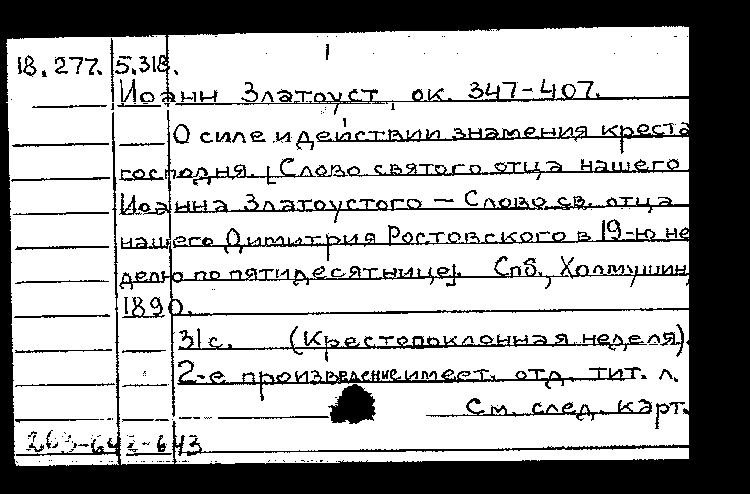 18.277. 5.318.
Иоанн Златоуст, ок. 347-407.
О силе и действии знамения креста
господня. [Слово святого отца нашего
Иоанна Златоустого - Слово св. отца
нашего Димитрия Ростовского в 19-ю не
делю по пятидесятнице]. Спб., Холмушин,
1890.
31с. (Крестопоклонная неделя).
2-е произведение имеет. отд. тит. л.
См. след. карт.
263-642-643